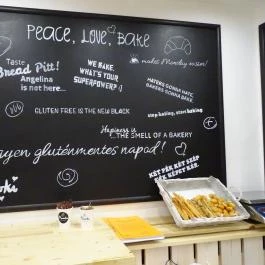 PEACE, LOVE, BAKE
Taste
Bread Pitt!
Angelina
is not here...
WE BAKE.
WHAT'S YOUR
SUPERPOWER? :)
makes Monday warm!
HATERS GONNA HATE,
BAKERS GONNA BAKE.
GLUTEN FREE IS THE NEW BLACK
stop baking, start baking
Happiness is
...THE SMELL OF A BAKERY
gyen gluténmentes napod!
KÉT PÉK KÉT SZÉP